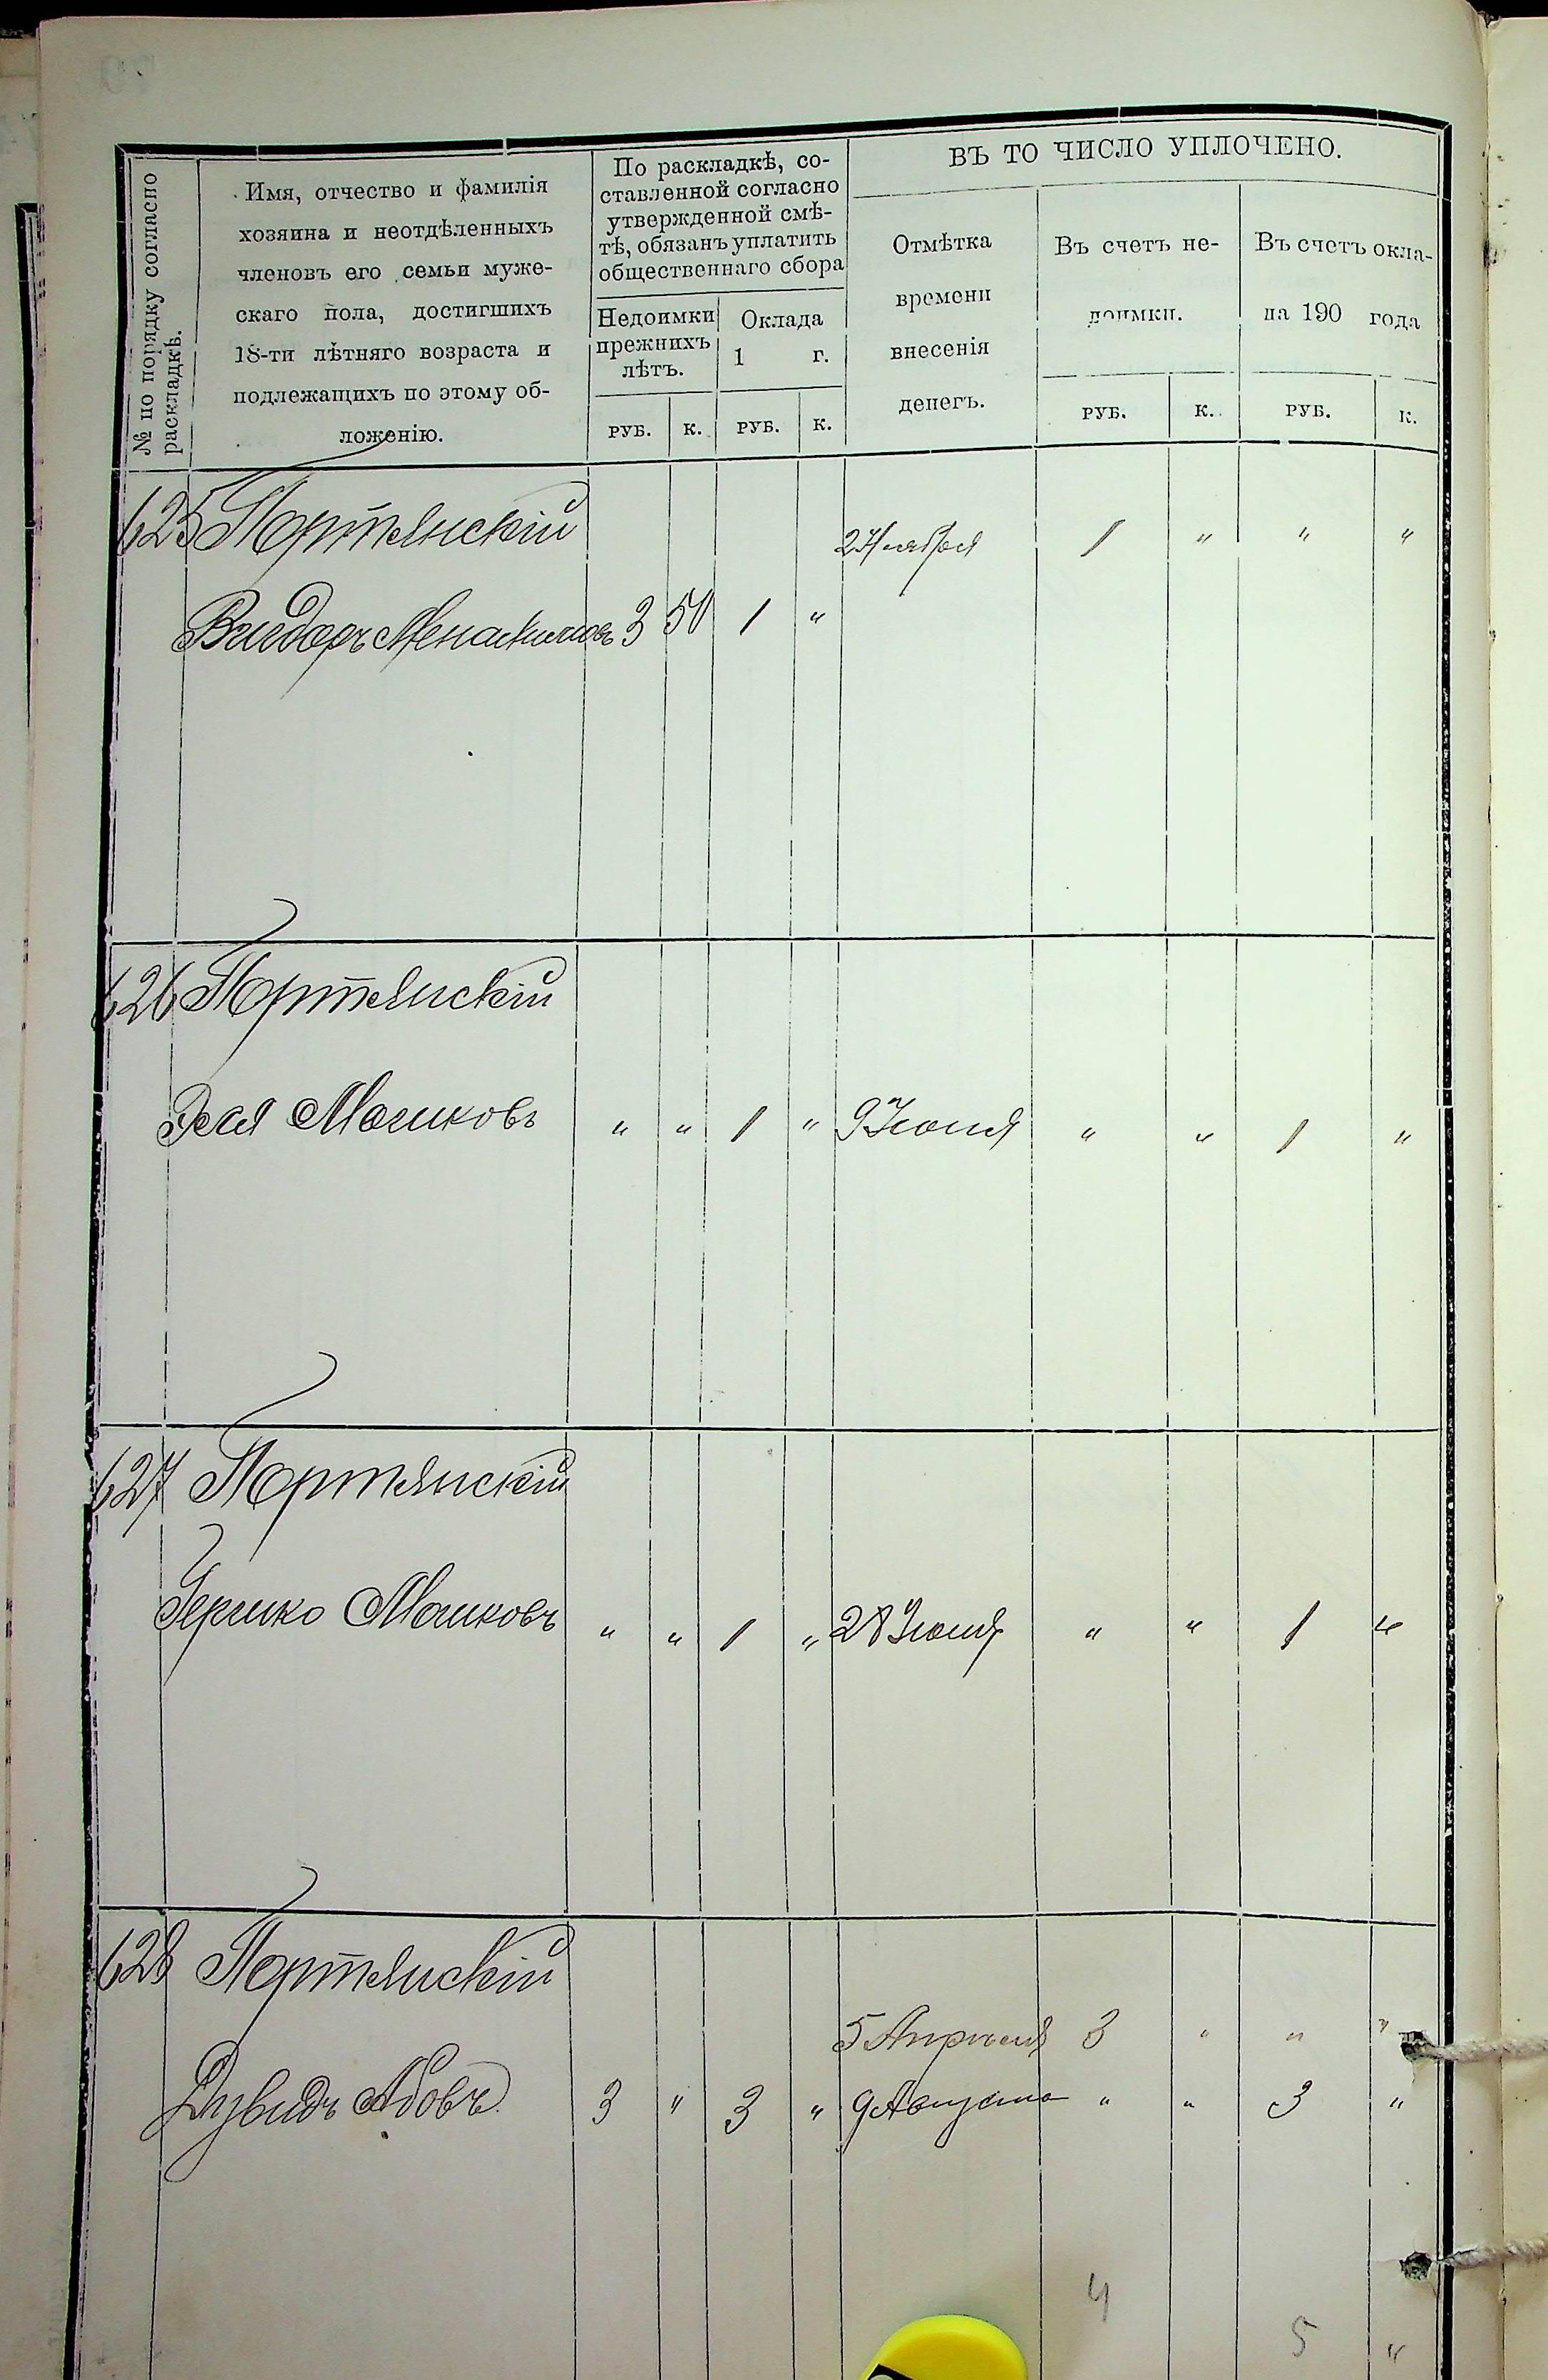 № по порядку согласно
раскладкѣ.
Имя, отчество и фамилія
хозяина и неотдѣленныхъ
членовъ его семьи муже-
скаго пола, достигшихъ
18-ти лѣтняго возраста и
подлежащихъ по этому об-
ложенію.
По раскладкѣ, со-
ставленной согласно
утвержденной смѣ-
тѣ, обязанъ уплатить
общественнаго сбора
Недоимки
прежнихъ
лѣтъ.
Оклада
1 г.
РУБ. К. РУБ. К.
ВЪ ТО ЧИСЛО УПЛОЧЕНО.
Отмѣтка
времени
внесенія
денегъ.
Въ счетъ не-
доимки.
Въ счетъ окла-
на 190 года
РУБ. К. РУБ. К.
625 Портянскій
1 " " "
3 50 1 "
626 Портянскій
Эля Мошковъ " " 1 " 9 Іюня " " 1 "
627 Портянскій
Гершко Мошковъ " " 1 " 28 Іюня " " 1 "
628 Портянскій
5 Апрѣля 3 " " "
Дувидъ Абовъ 3 " 3 " 9 Августа " " 3 "
4
5 "